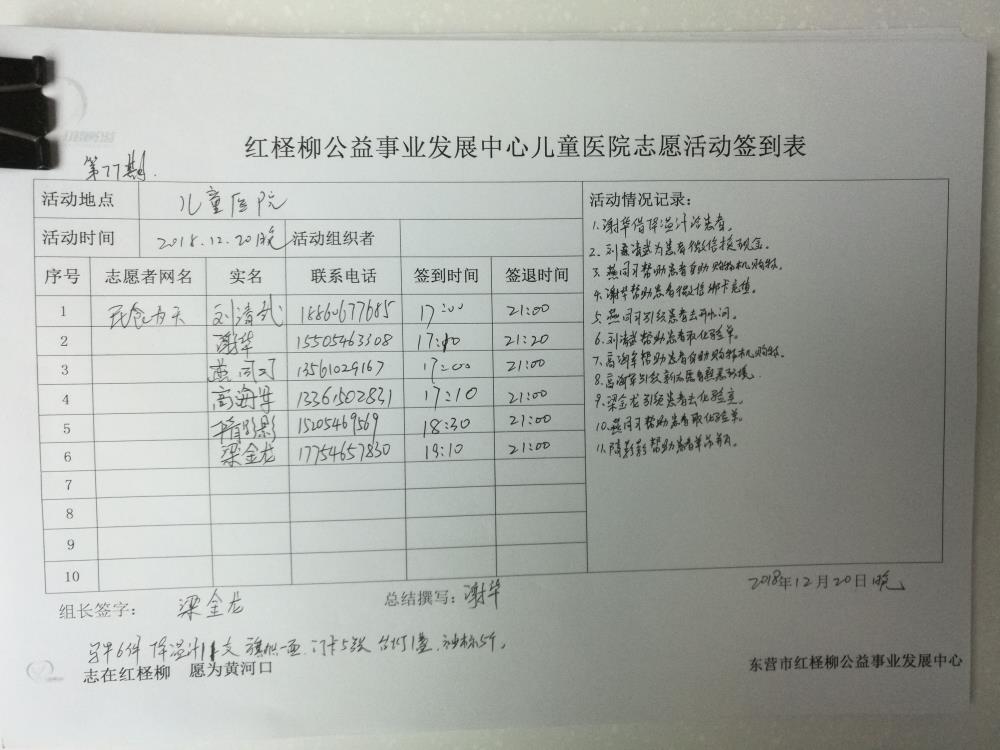 红柽柳公益事业发展中心儿童医院志愿活动签到表
第77期.
活动地点 儿童医院
活动时间 2018.12.20晚 活动组织者
序号 志愿者网名 实名 联系电话 签到时间 签退时间
1 民食为天 刘清武 18860677685 17:00 21:00
2 谢华 15505463308 17:10 21:20
3 燕同习 13561029167 17:00 21:00
4 高海军 13361502831 17:10 21:00
5 隋彩影 15205469569 18:30 21:00
6 梁金龙 17754657830 19:10 21:00
7
8
9
10
活动情况记录:
1.谢华借降温计给患者。
2.刘清武为患者微信换现金。
3.燕同习帮助患者自助购物机购物。
4.谢华帮助患者微信绑卡充值。
5.燕同习引领患者去开水间。
6.刘清武帮助患者取化验单。
7.高海军帮助患者自助购物机购物。
8.高海军引领新志愿者熟悉环境.
9.梁金龙引领患者去化验室。
10.燕同习帮助患者取化验单。
11.隋彩影帮助患者
2018年12月20日晚
组长签字: 梁金龙 总结撰写: 谢华
马甲6件 降温计11支 旗帜一面、门卡5张 台灯1盏、袖标5个。
志在红柽柳 愿为黄河口
东营市红柽柳公益事业发展中心